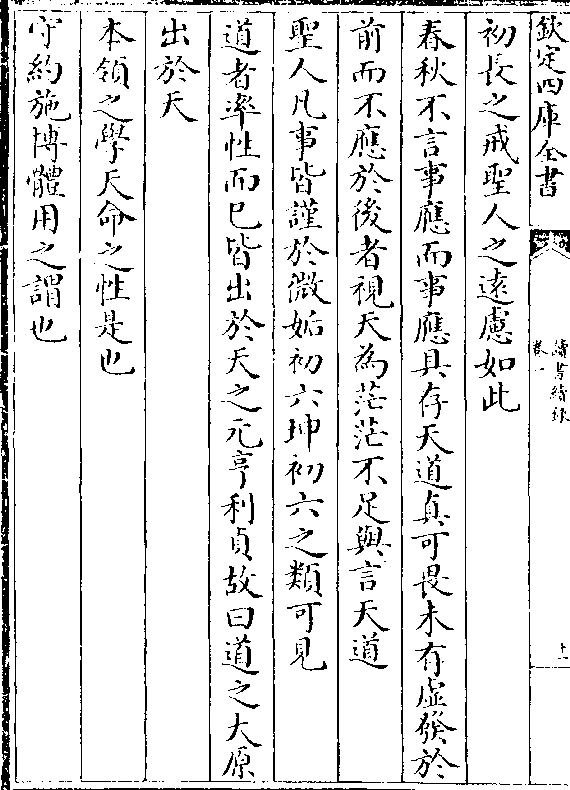 欽定四庫全書
讀書續錄
卷一
十一
初長之戒聖人之遠慮如此
春秋不言事應而事應具存天道真可畏未有虛發於
前而不應於後者視天為茫茫不足與言天道
聖人凡事皆謹於微姤初六坤初六之類可見
道者率性而已皆出於天之元亨利貞故曰道之大原
出於天
本領之學天命之性是也
守約施博體用之謂也